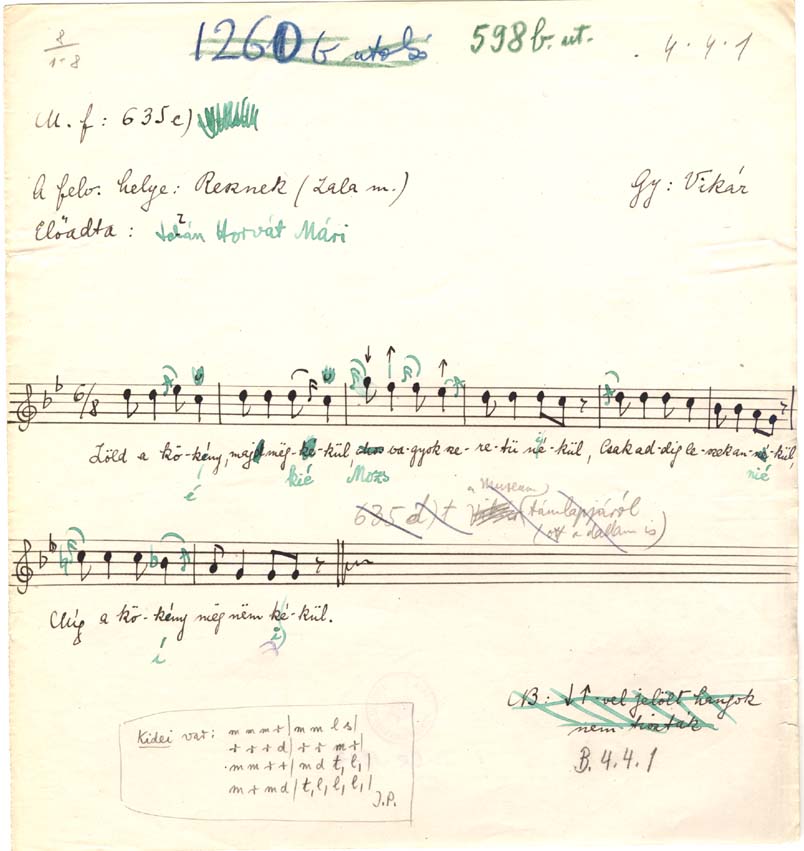 2
1-8
1260 b utolsó 598 b. ut. 4.4.1
M. f: 635 c)
A felv. helye: Resznek (Zala m.) Gy: Vikár
Előadta: Horvát Mári
6/8
Zöld a kö-kény, majd még- ké-kül, va-gyok sze-re-tü né-kül, Csak ad-dig le-szek an- né-kül,
é kié Mozs nié
635 d) (támlapjáról
(ott a dallam is)
Míg a kö-kény még nëm ké-kül.
í i)
NB: ↓↑-vel jelölt hangok
nem tiszták
B. 4.4.1
Kidei var: m m m r | m m l s |
r r r d | r r m r |
m m r r | m d t, l, |
m r m d | t, l, l, l, |
J.P.